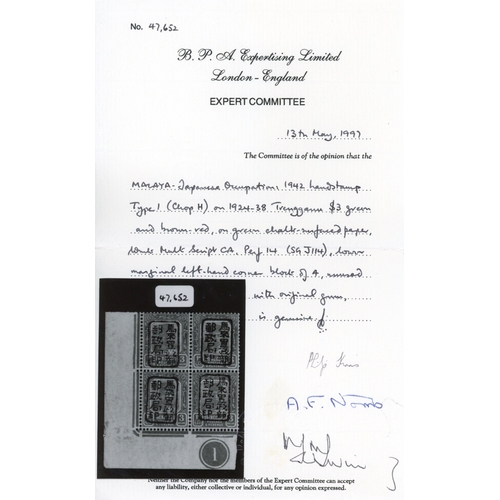 No. 47,652
B. P. A. Expertising Limited
London - England
EXPERT COMMITTEE
13th May, 1997
The Committee is of the opinion that the
MALAYA - Japanese Occupation: 1942 handstamp
Type 1 (Chop H) on 1924-38 Trengganu $3 green
and brown-red, on green chalk-surfaced paper,
wmk Mult Script CA, Perf 14 (SG J114), lower
marginal left-hand corner block of 4, unused
with original gum,
is genuine.
47,652
1
Neither the Company nor the members of the Expert Committee can accept
any liability, either collective or individual, for any opinion expressed.